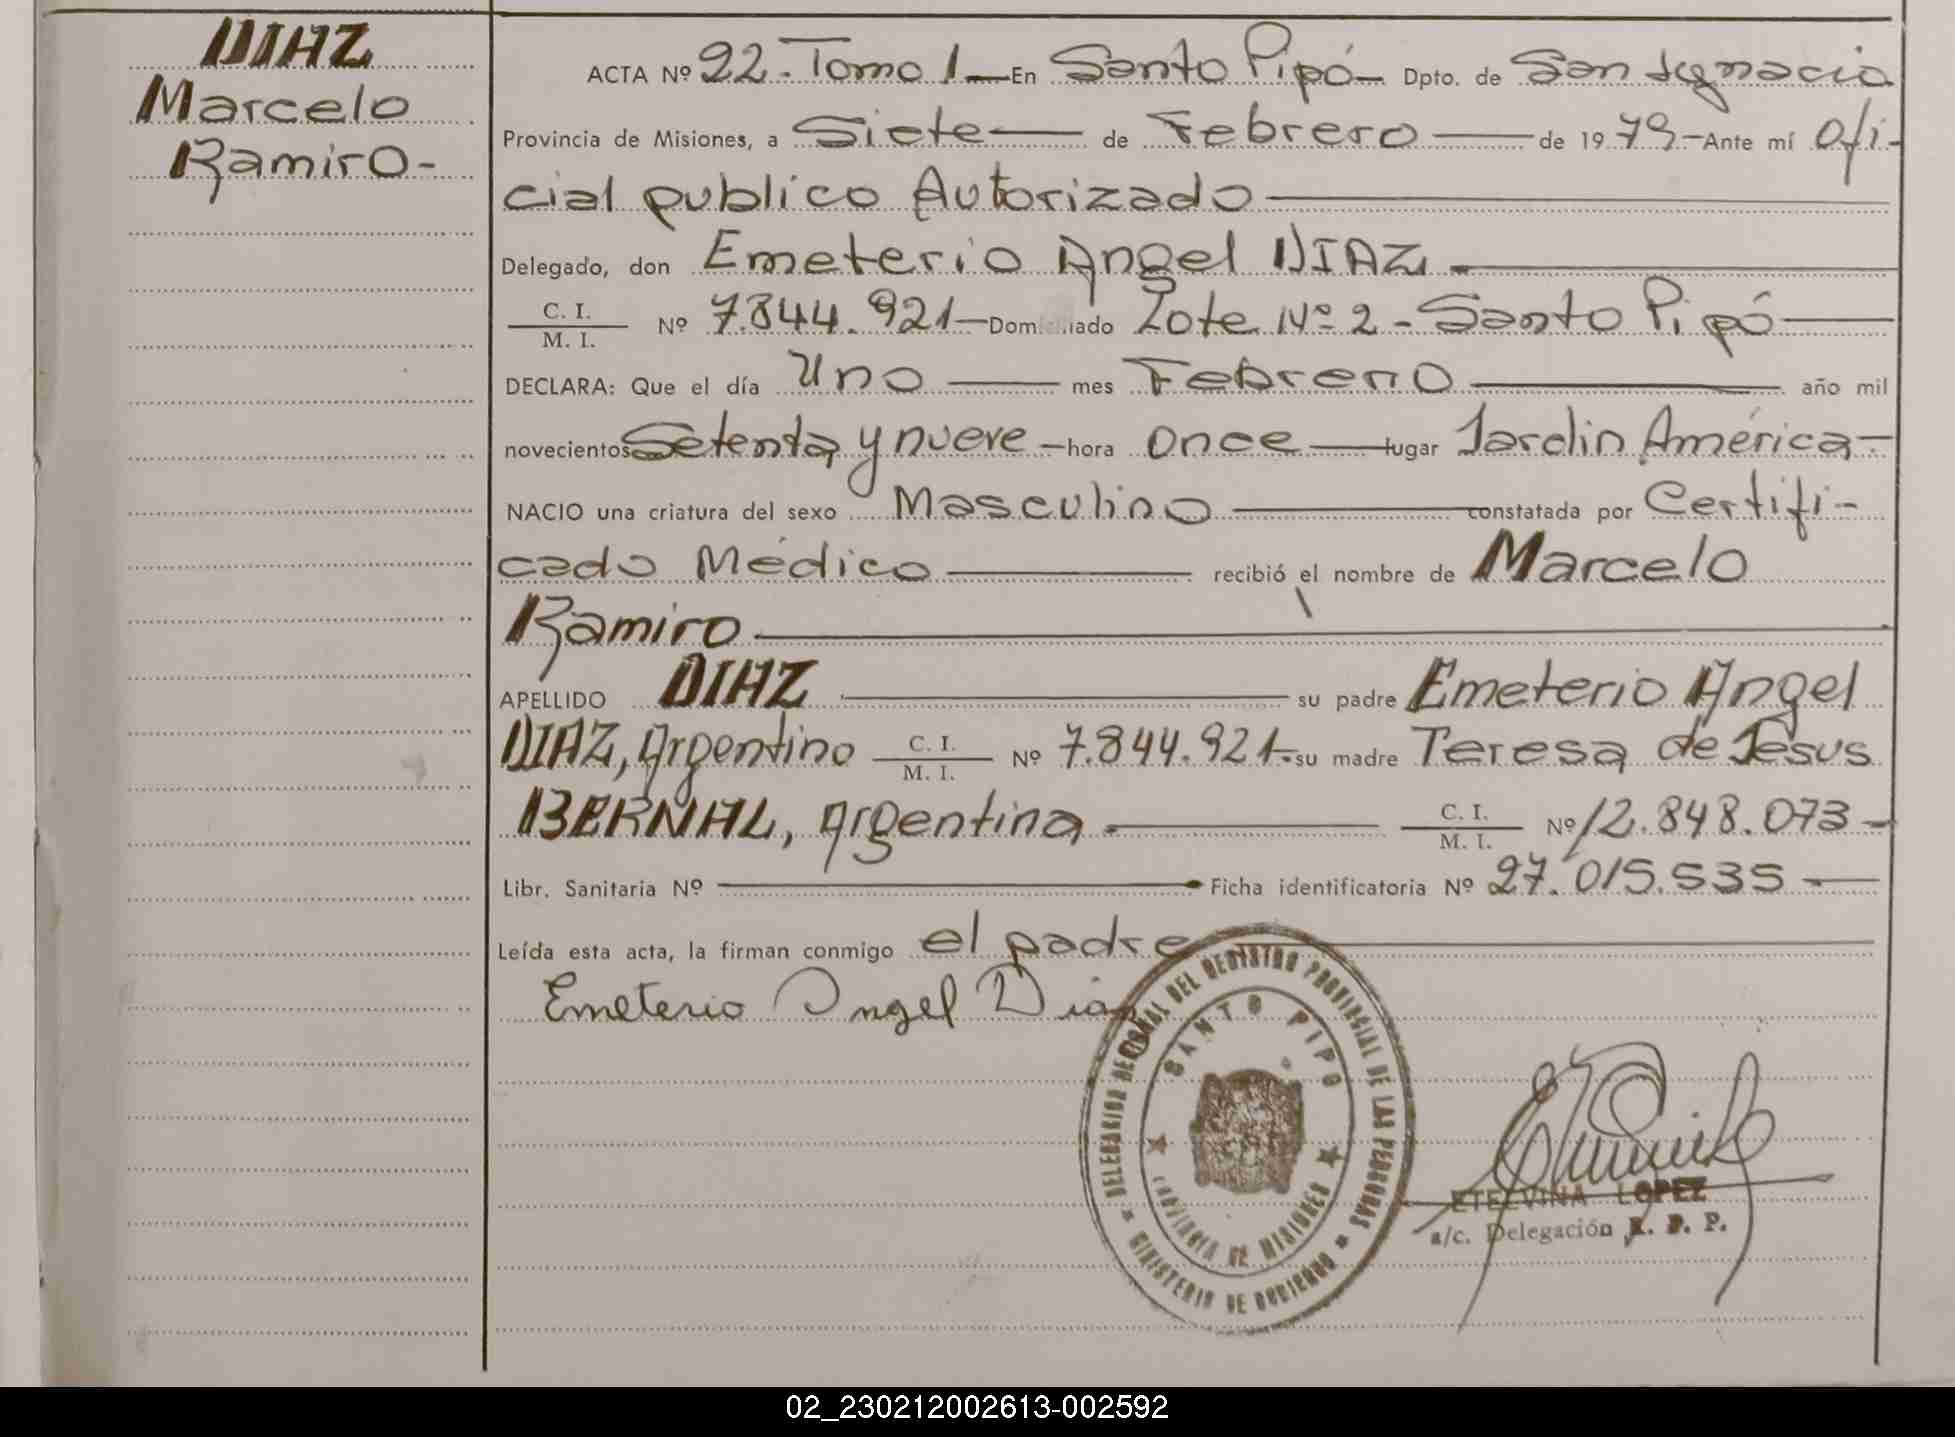 DIAZ
Marcelo
Ramiro-
ACTA Nº 22-Tomo 1— En Santo Pipó— Dpto. de San Ignacio
Provincia de Misiones, a Siete— de Febrero— de 1979-Ante mí Ofi-
cial publico Autorizado—
Delegado, don Emeterio Angel DIAZ.—
C. I.
M. I. Nº 7.844.921—Domiciliado Lote Nº 2-Santo Pipó—
DECLARA: Que el día Uno— mes Febrero— año mil
novecientos Setenta y nueve—hora once—lugar Jardin América-
NACIO una criatura del sexo Masculino— constatada por Certifi-
cado Médico— recibió el nombre de Marcelo
Ramiro—
APELLIDO DIAZ— su padre Emeterio Angel
DIAZ, Argentino C. I.
M. I. Nº 7.844.921.-su madre Teresa de Jesus
BERNAL, Argentina.— C. I.
M. I. Nº 12.848.073-
Libr. Sanitaria Nº— Ficha identificatoria Nº 27.015.535-—
Leída esta acta, la firman conmigo el padre—
Emeterio Angel Diaz
DELEGACION REGIONAL DEL REGISTRO PROVINCIAL DE LAS PERSONAS
SANTO PIPO
PROVINCIA DE MISIONES
MINISTERIO DE GOBIERNO
ETELVINA LOPEZ
a/c. Delegación R. P. P.
02_230212002613-002592